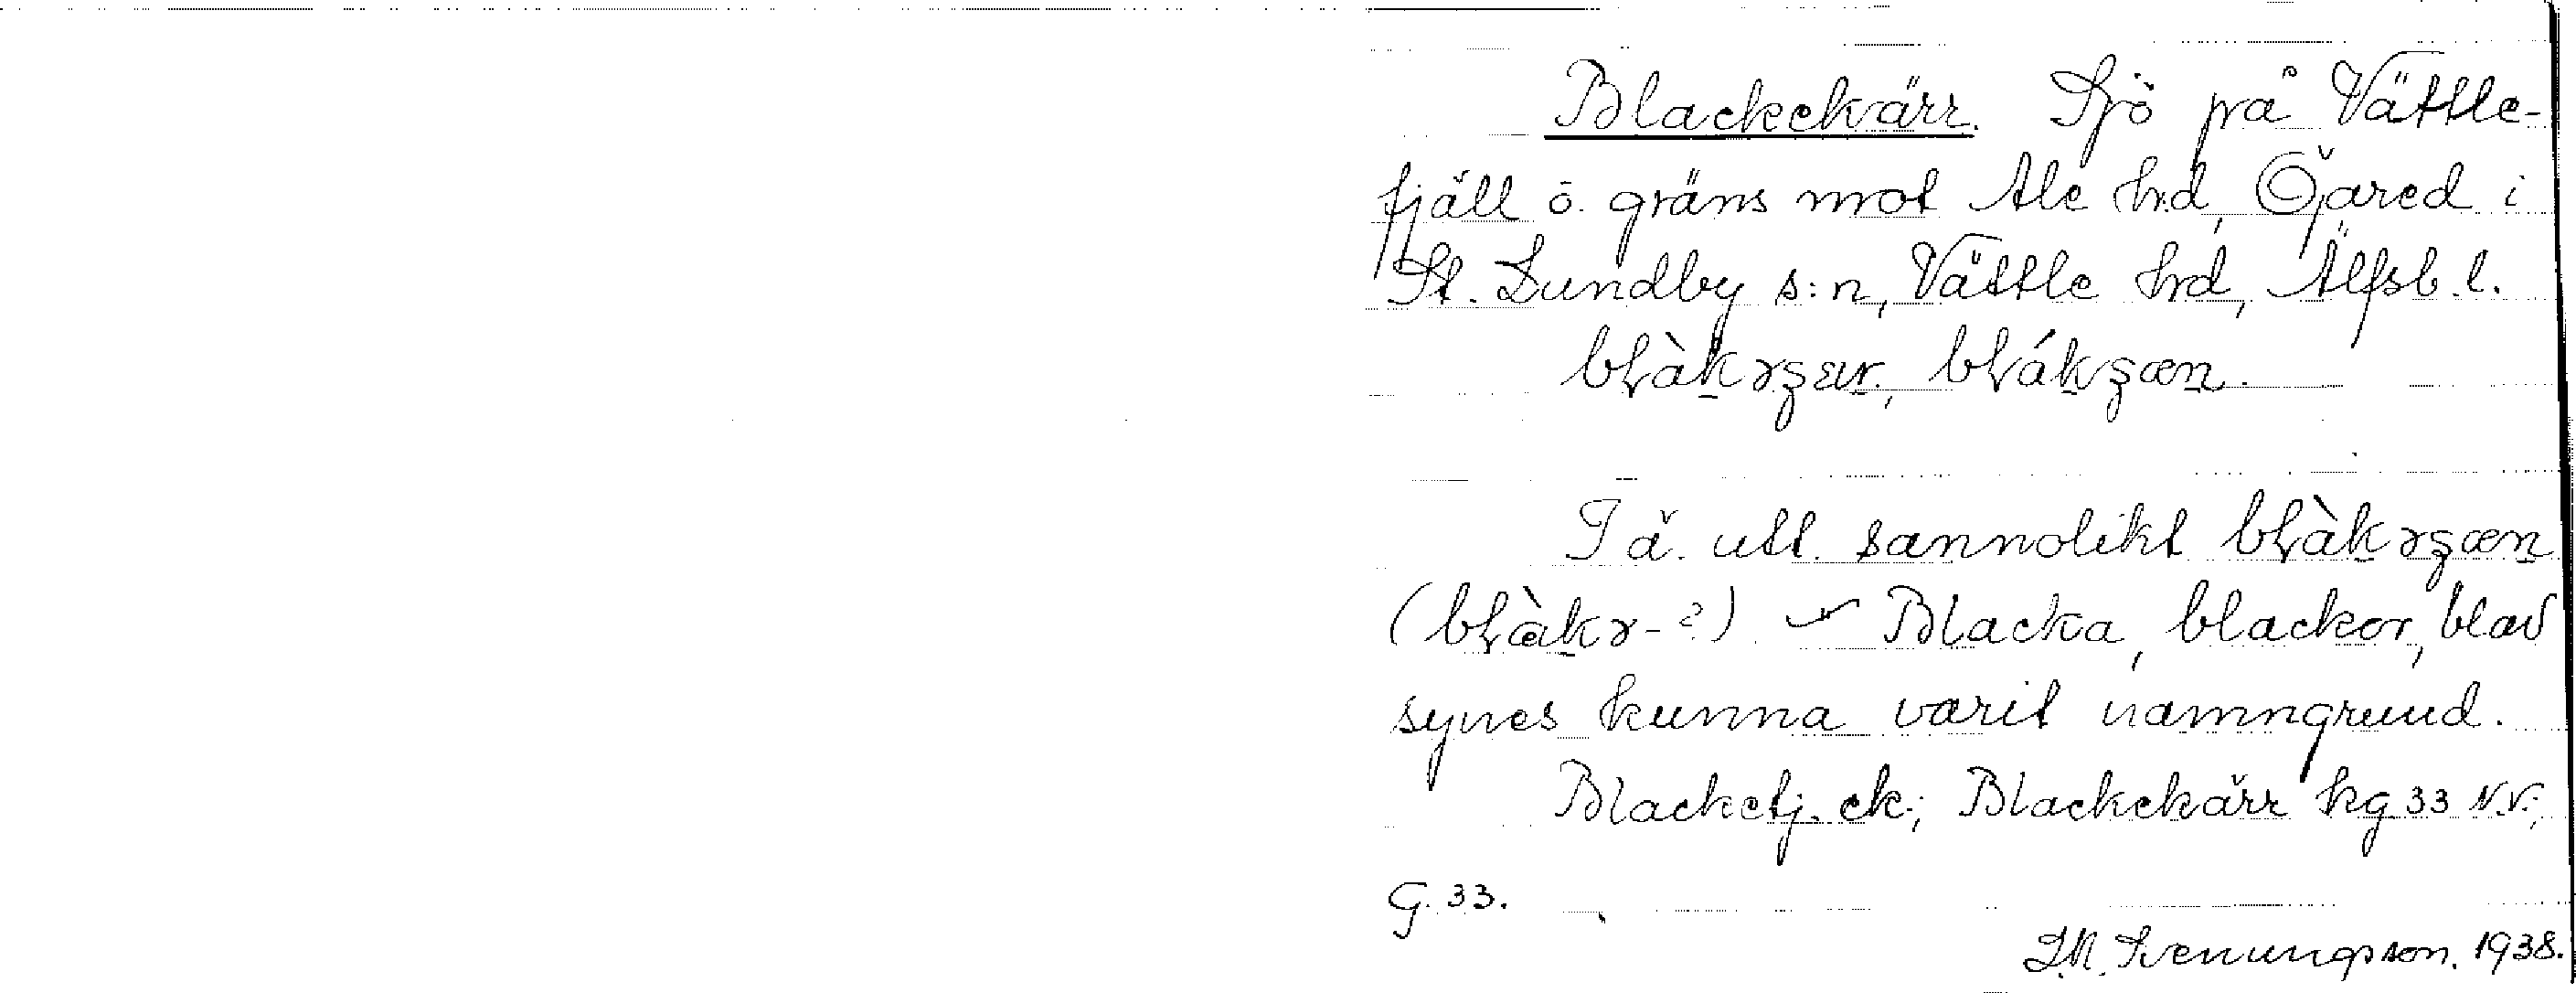 Blackekärr. Sjö på Vättle-
fjäll ö. gräns mot Ale hrd, Öjared i
St. Lundby s:n, Vättle hrd, Älfsb. l.
blàk
I ä. utt. sannolikt
Blacka, blackor, blad
synes kunna varit namngrund.
Blacketj. ek.; Blackekärr kg 33 N.V.;
G. 33.
Svenungsson. 1938.